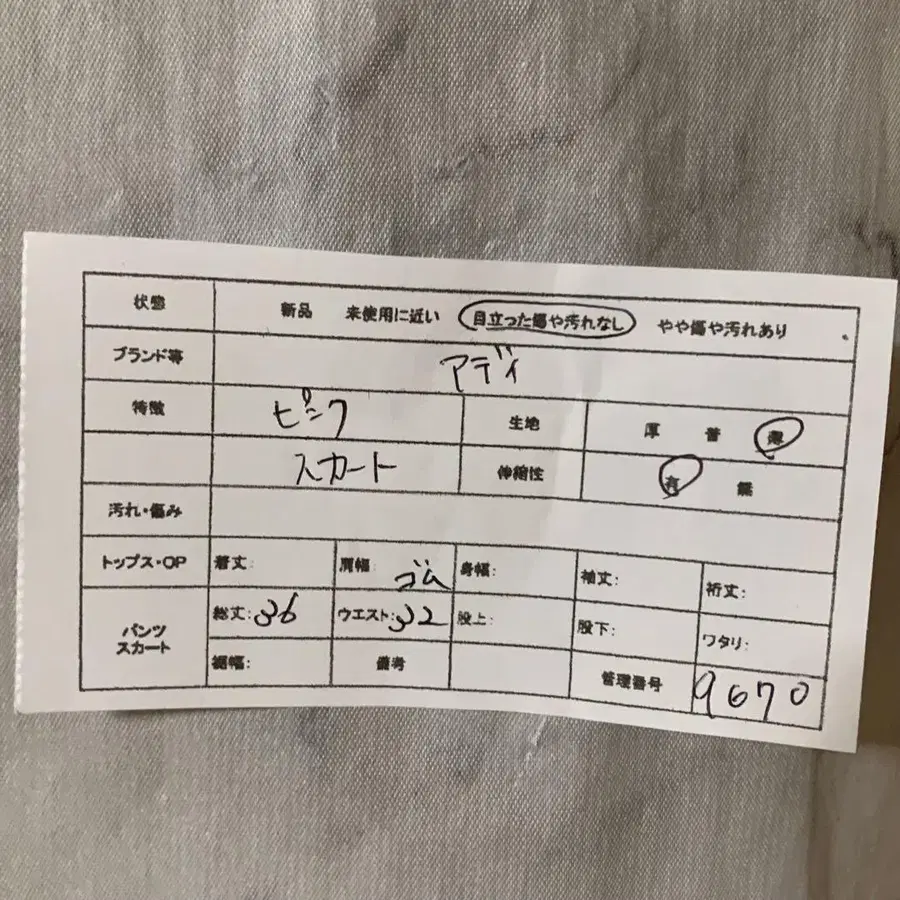 状態 新品 未使用に近い 目立った傷や汚れなし やや傷や汚れあり
ブランド等 アディ
特徴 ピンク 生地 厚 普 薄
スカート 伸縮性 有 無
汚れ・傷み
トップス・OP 着丈: 肩幅: 身幅: 袖丈: 裄丈:
ゴム
パンツ スカート 総丈:36 ウエスト:32 股上: 股下: ワタリ:
裾幅: 備考 管理番号 9670